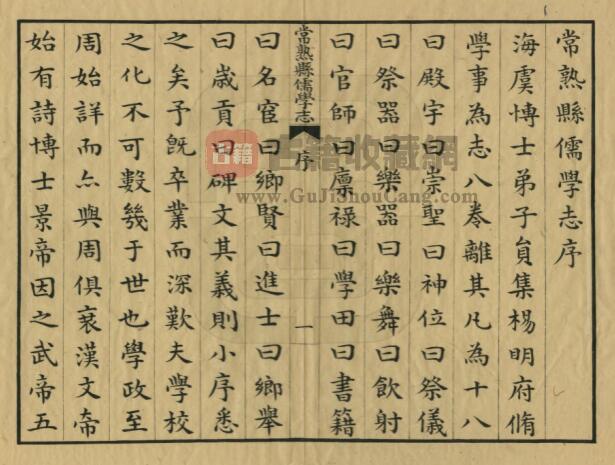 常熟縣儒學志序
海虞博士弟子貟集楊明府脩
學事為志八卷離其凡為十八
曰殿宇曰崇聖曰神位曰祭儀
曰祭器曰樂器曰樂舞曰飲射
曰官師曰廩祿曰學田曰書籍
常熟縣儒學志
序
一
曰名宦曰鄉賢曰進士曰鄉舉
曰歲貢曰碑文其義則小序悉
之矣予既卒業而深歎夫學校
之化不可數幾于世也學政至
周始詳而亦與周俱衰漢文帝
始有詩博士景帝因之武帝五
古籍
古籍收藏網
www.GuJiShouCang.com